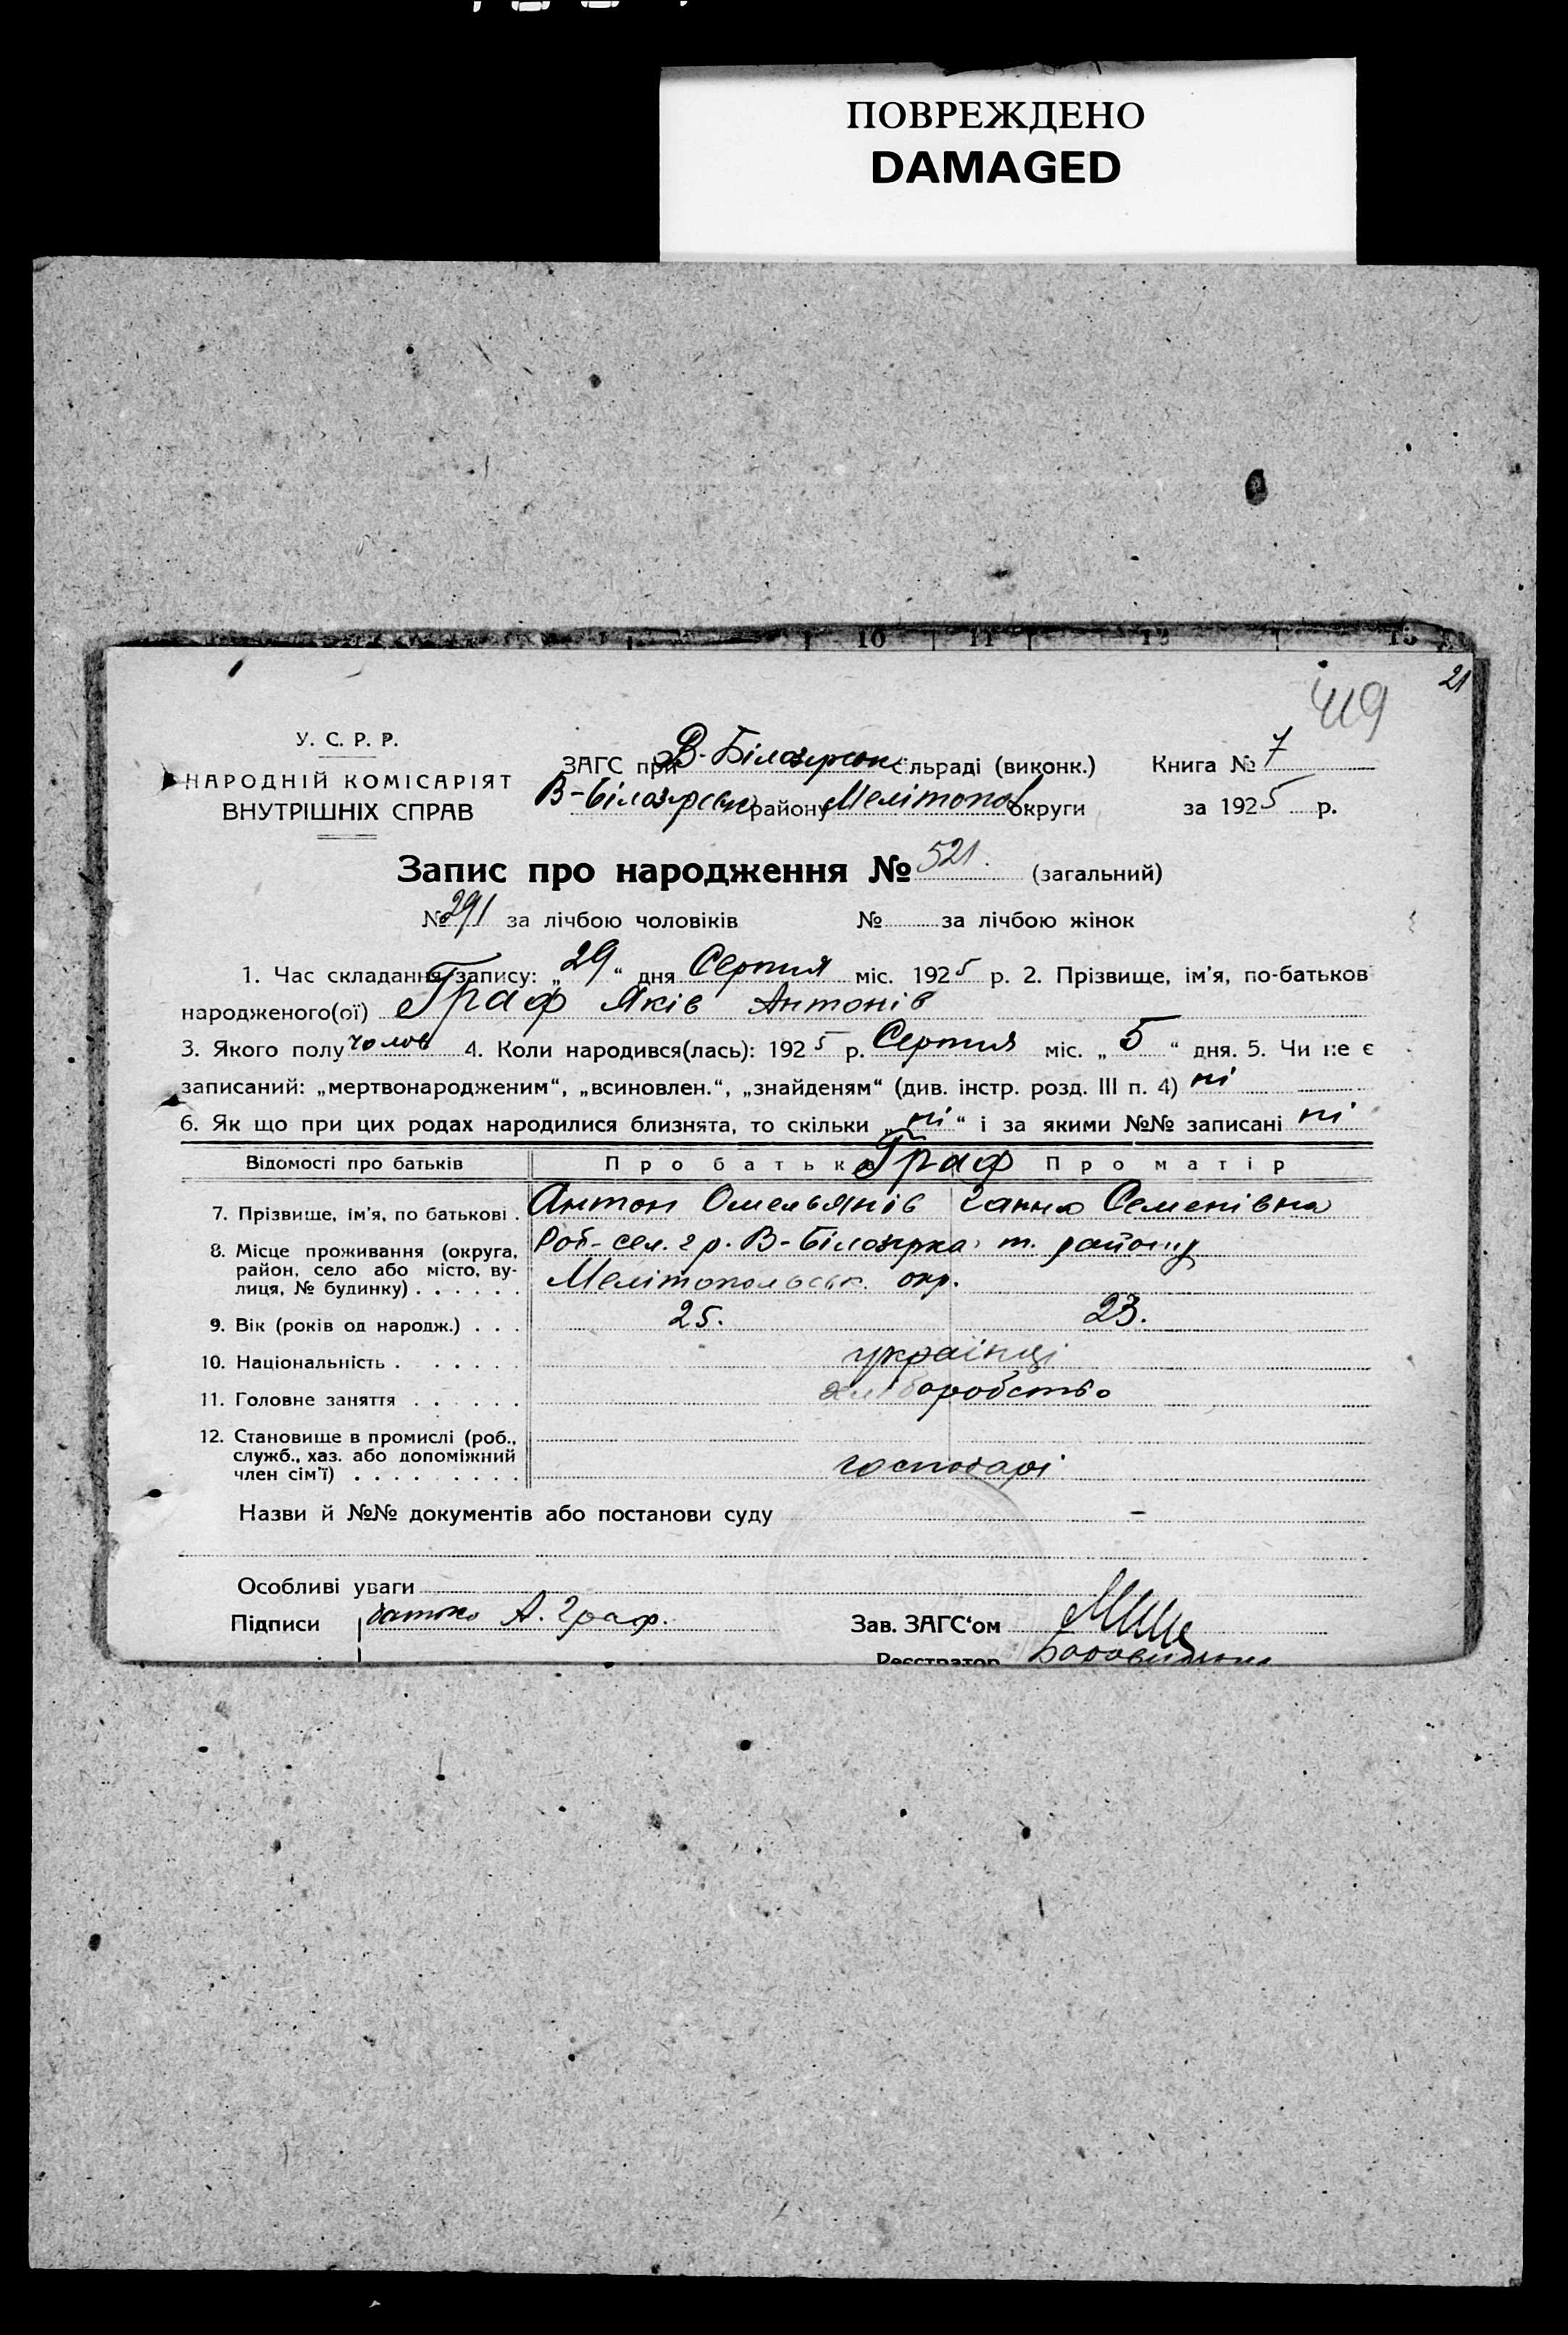 ПОВРЕЖДЕНО
DAMAGED
10 11 12 13
21
419
У. С. Р. Р.
НАРОДНІЙ КОМІСАРІЯТ
ВНУТРІШНІХ СПРАВ
ЗАГС при В-Білозерськ сільраді (виконк.) Книга № 7
В-Білозерськ району Мелітопол округи за 1925 р.
Запис про народження № 521. (загальний)
№ 291 за лічбою чоловіків № за лічбою жінок
1. Час складання запису: „29“ дня Серпня міс. 1925 р. 2. Прізвище, ім'я, по-батьков
народженого(ої) Граф Яків Антонів
3. Якого полу чолов 4. Коли народився(лась): 1925 р. Серпня міс. „5“ дня. 5. Чи не є
записаний: „мертвонародженим“, „всиновлен.“, „знайденям“ (див. інстр. розд. III п. 4) ні
6. Як що при цих родах народилися близнята, то скільки „ні“ і за якими №№ записані ні
Відомості про батьків Про батька Граф Про матір
7. Прізвище, ім'я, по батькові . Антон Омельянів Ганна Семенівна
8. Місце проживання (округа, район, село або місто, ву-лиця, № будинку) . . . . . . В-Білозірка т. району
Мелітопольськ. окр.
9. Вік (років од народж.) . . . 25. 23.
10. Національність . . . . . . українці
11. Головне заняття . . . . . . хліборобство
12. Становище в промислі (роб.,
служб., хаз. або допоміжний
член сім'ї) . . . . . . . . . господарі
Назви й №№ документів або постанови суду –
Особливі уваги
Підписи батько А. Граф. Зав. ЗАГС‘ом
Реєстратор